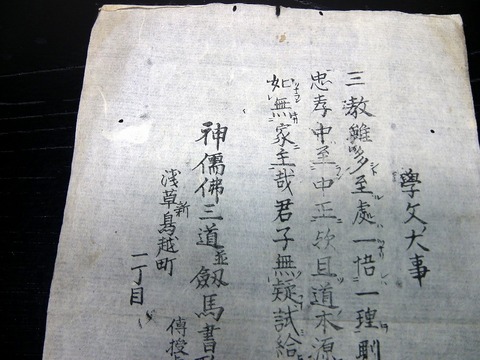 學文大事
三教雖多至處一悟一理
忠孝中至中正欤且道本源
如無家主哉君子無疑試給
神儒佛三道並劔馬書
浅草新鳥越町
二丁目
傳授